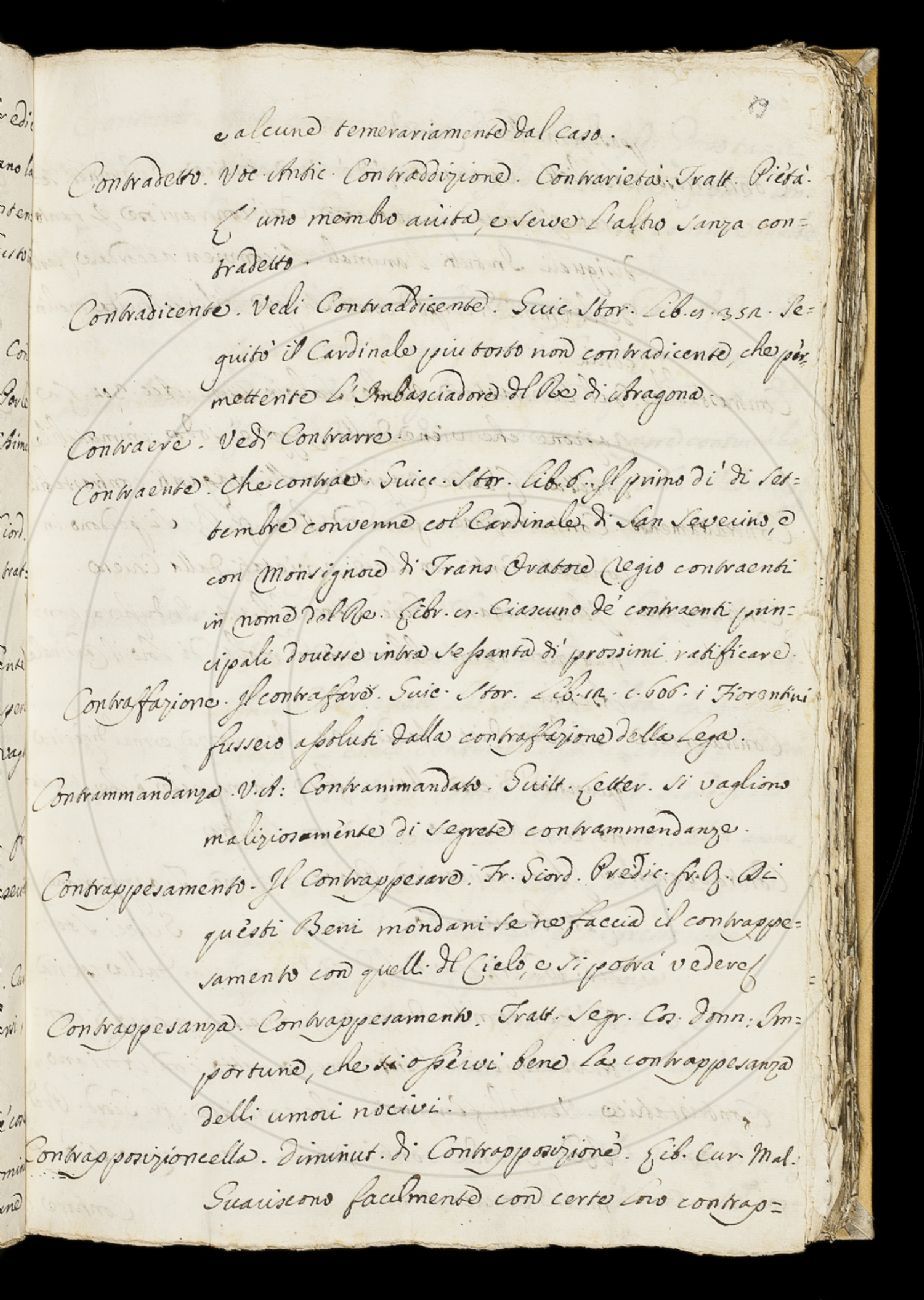 89
e alcune temerariamente dal caso.
Contradetto. Voc. Antic. Contraddizione. Contrarietà. Tratt. Pietà.
L'uno membro aiuta, e serve l'altro sanza con=
tradetto.
Contradicente. Vedi Contraddicente. Guic. Stor. Lib. Se=
guitò il Cardinale piu tosto non contradicente, che per,
mettente l'Imbasciadore dl Rè di Aragona.
Contraere. Vedi Contrarre.
Contraente. Che contrae. Guicc. Stor. Lib. 6. Il primo dì di Set=
tembre convenne col Cardinale di San Severino, e
con Monsignore di Trans Oratore Regio contraenti
in nome dal Re. Libr. Ciascuno de' contraenti prin=
cipali dovesse intra sessanta dì prossimi ratificare.
Contraffazione. Il contraffare. Guic. Stor. Lib. 12. c. 606. i Fiorentini
fussero assoluti dalla contraffazione della Lega.
Contrammandanza. V. A: Contrammandato. Guitt. Letter. Si vagliono
maliziosamente di segrete contrammendanze.
Contrappesamento. Il Contrappesare. Fr. Giord. Predic. fr. R. Di
questi Beni mondani se ne faccia il contrappe=
samento con quelli dl Cielo, e si potrà vedere
Contrappesanza. Contrappesamento. Tratt. Segr. Cos. Donn: Im=
portune, che si osservi bene la contrappesanza
delli umori nocivi.
Contrapposizioncella. Diminut. di Contrapposizione. Lib. Cur. Mal.
Guariscono facilmente con certe loro contrap=